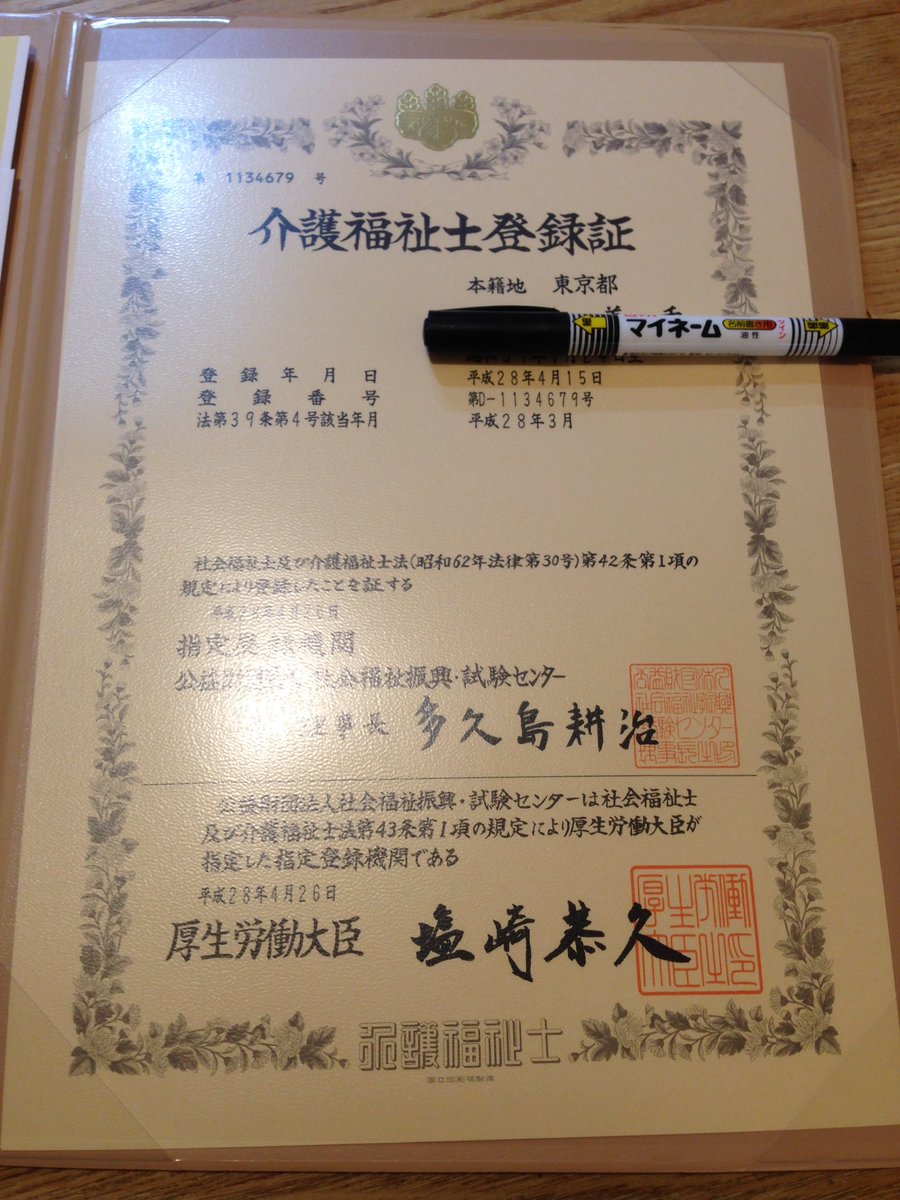 第 1134679 号
介護福祉士登録証
本籍地 東京都
マイネーム 名前書き用 油性 ツイン
登録年月日 平成28年4月15日
登録番号 第D-1134679号
法第39条第4号該当年月 平成28年3月
社会福祉士及び介護福祉士法(昭和62年法律第30号)第42条第1項の
規定により登録したことを証する
平成28年4月
指定登録機関
公益財団法人社会福祉振興・試験センター
理事長 多久島耕治
公益財団法人社会福祉振興・試験センターは社会福祉士
及び介護福祉士法第43条第1項の規定により厚生労働大臣が
指定した指定登録機関である
平成28年4月26日
厚生労働大臣 塩崎恭久
厚生労働大臣之印
介護福祉士
国立印刷局製造